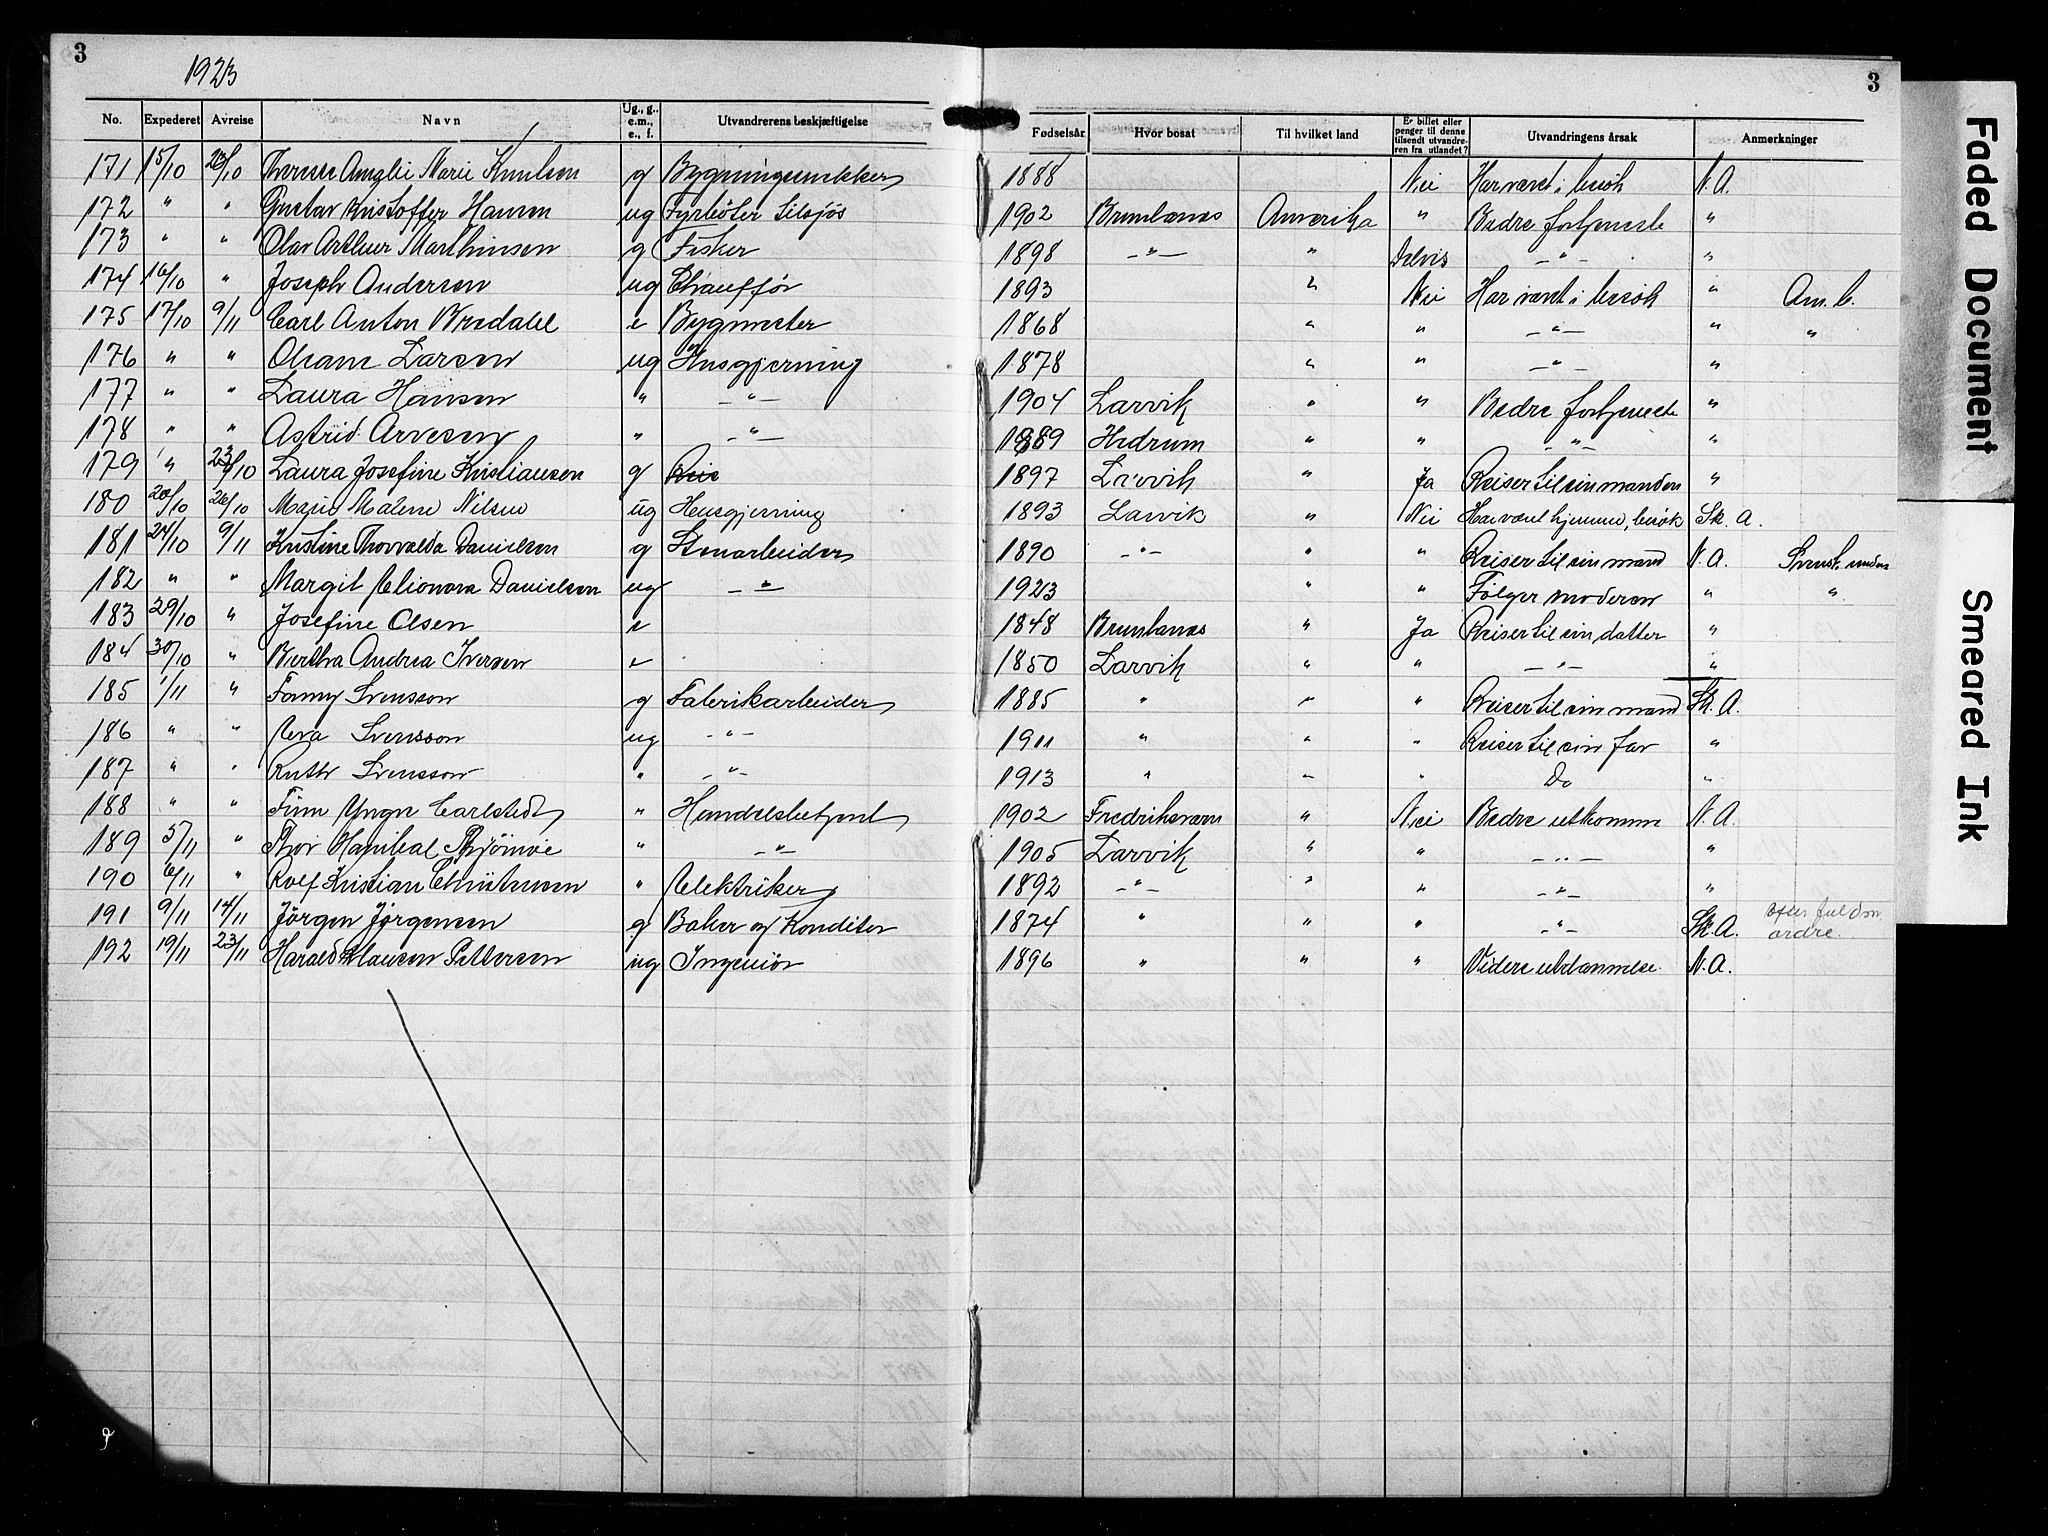 3
1923
3
No. Expederet Avreise Navn Ug., g., e.m., e., f. Utvandrerens beskjæftigelse Fødselsår Hvor bosat Til hvilket land Er billet eller penger til denne tilsendt utvandreren fra utlandet? Utvandringens årsak Anmerkninger
171 15/10 23/10 Marie Knudsen g 1888 Nei Har været i besøk N. A.
172 " " Gustav Kristoffer Hansen ug Fyrbøter tilsjøs 1902 Brunlanæs Amerika " Bedre fortjeneste "
173 " " Olav Arthur Marthinsen g Fisker 1898 -"- " Delvis -"- "
174 16/10 " Joseph Andersen ug Chauffør 1893 " Nei Har været i besøk " Am. b.
175 17/10 9/11 Carl Anton Bredahl e Bygmester 1868 " " -"- " "
176 " " Larsen ug Husgjerning 1878 " " -"- "
177 " " Laura Hansen " -"- 1904 Larvik " " Bedre fortjeneste "
178 " " Astrid Arvesen " -"- 1889 Hedrum " " -"- "
179 " 23/10 Laura Josefine Kristiansen g 1897 Larvik " Ja Reiser til sin manden "
180 20/10 26/10 Malene Nilsen ug Husgjerning 1893 Larvik " Nei Har været hjemme, besøk Sk. A.
181 24/10 9/11 Kristine Thorvalda Danielsen g Stenarbeider 1890 -"- " " Reiser til sin mand N. A. Svensk
182 " " Margit Elionora Danielsen ug -"- 1923 " " Følger moderen " "
183 29/10 " Josefine Olsen e 1848 Brunlanæs " Ja Reiser til sin datter "
184 30/10 " Bertha Andrea Iversen e 1850 Larvik " " -"- "
185 1/11 " Fanny Svensson g Fabrikarbeider 1885 " " " Reiser til sin mand Sk. A.
186 " " Svensson ug -"- 1911 " " " Reiser til sin far "
187 " " Ruth Svensson " -"- 1913 " " " Do "
188 " " Finn Yngve Carlstedt " Handelsbetjent 1902 Fredriksværn " Nei Bedre utkomme N. A.
189 5/11 " Thor Hanibal " -"- 1905 Larvik " " -"- "
190 6/11 " Rolf Kristian Christensen " Elektriker 1892 -"- " " -"- "
191 9/11 14/11 Jörgen Jørgensen g Baker og Konditor 1874 " " " -"- Sk. A. ordre.
192 19/11 23/11 Harald Klausen Pettersen ug Ingeniør 1896 " " " Videre utdannelse N. A.
Faded Document
Smeared Ink